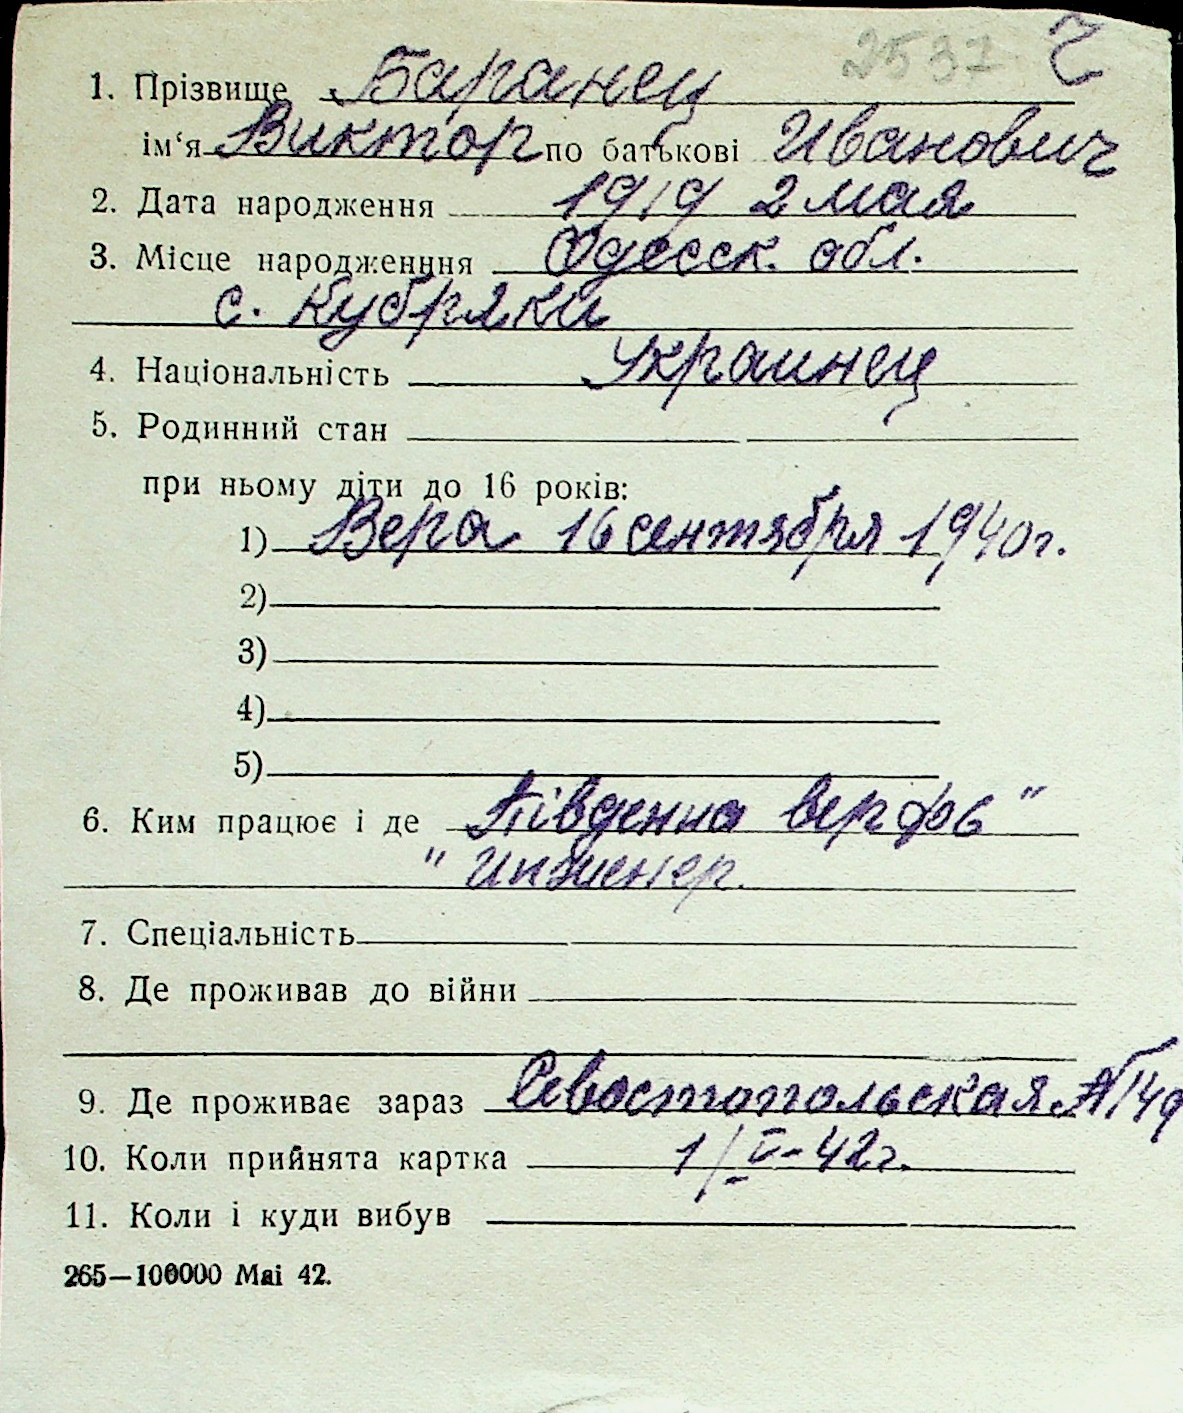 2537 Ч
1. Прізвище Баранец
ім‘я Виктор по батькові Иванович
2. Дата народження 1919 2 мая
3. Місце народженння Одесск. обл.
с. Кубряки
4. Національність Украинец
5. Родинний стан
при ньому діти до 16 років:
1) Вера 16 сентября 1940г.
2)
3)
4)
5)
6. Ким працює і де Південна верфь"
" Инженер.
7. Спеціальність
8. Де проживав до війни
9. Де проживає зараз Севостопольская №149
10. Коли прийнята картка 1/V-42г.
11. Коли і куди вибув
265—100000 Mai 42.